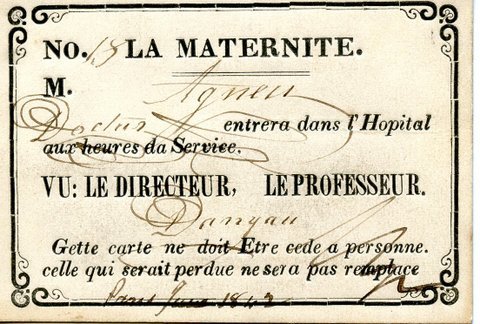 NO. 13 LA MATERNITE.
M. Agnew
Doctur entrera dans l'Hopital
aux heures da Service.
VU: LE DIRECTEUR, LE PROFESSEUR.
Dangau
Gette carte ne doit Etre cede a personne.
celle qui serait perdue ne sera pas remplace
Paris June 1842